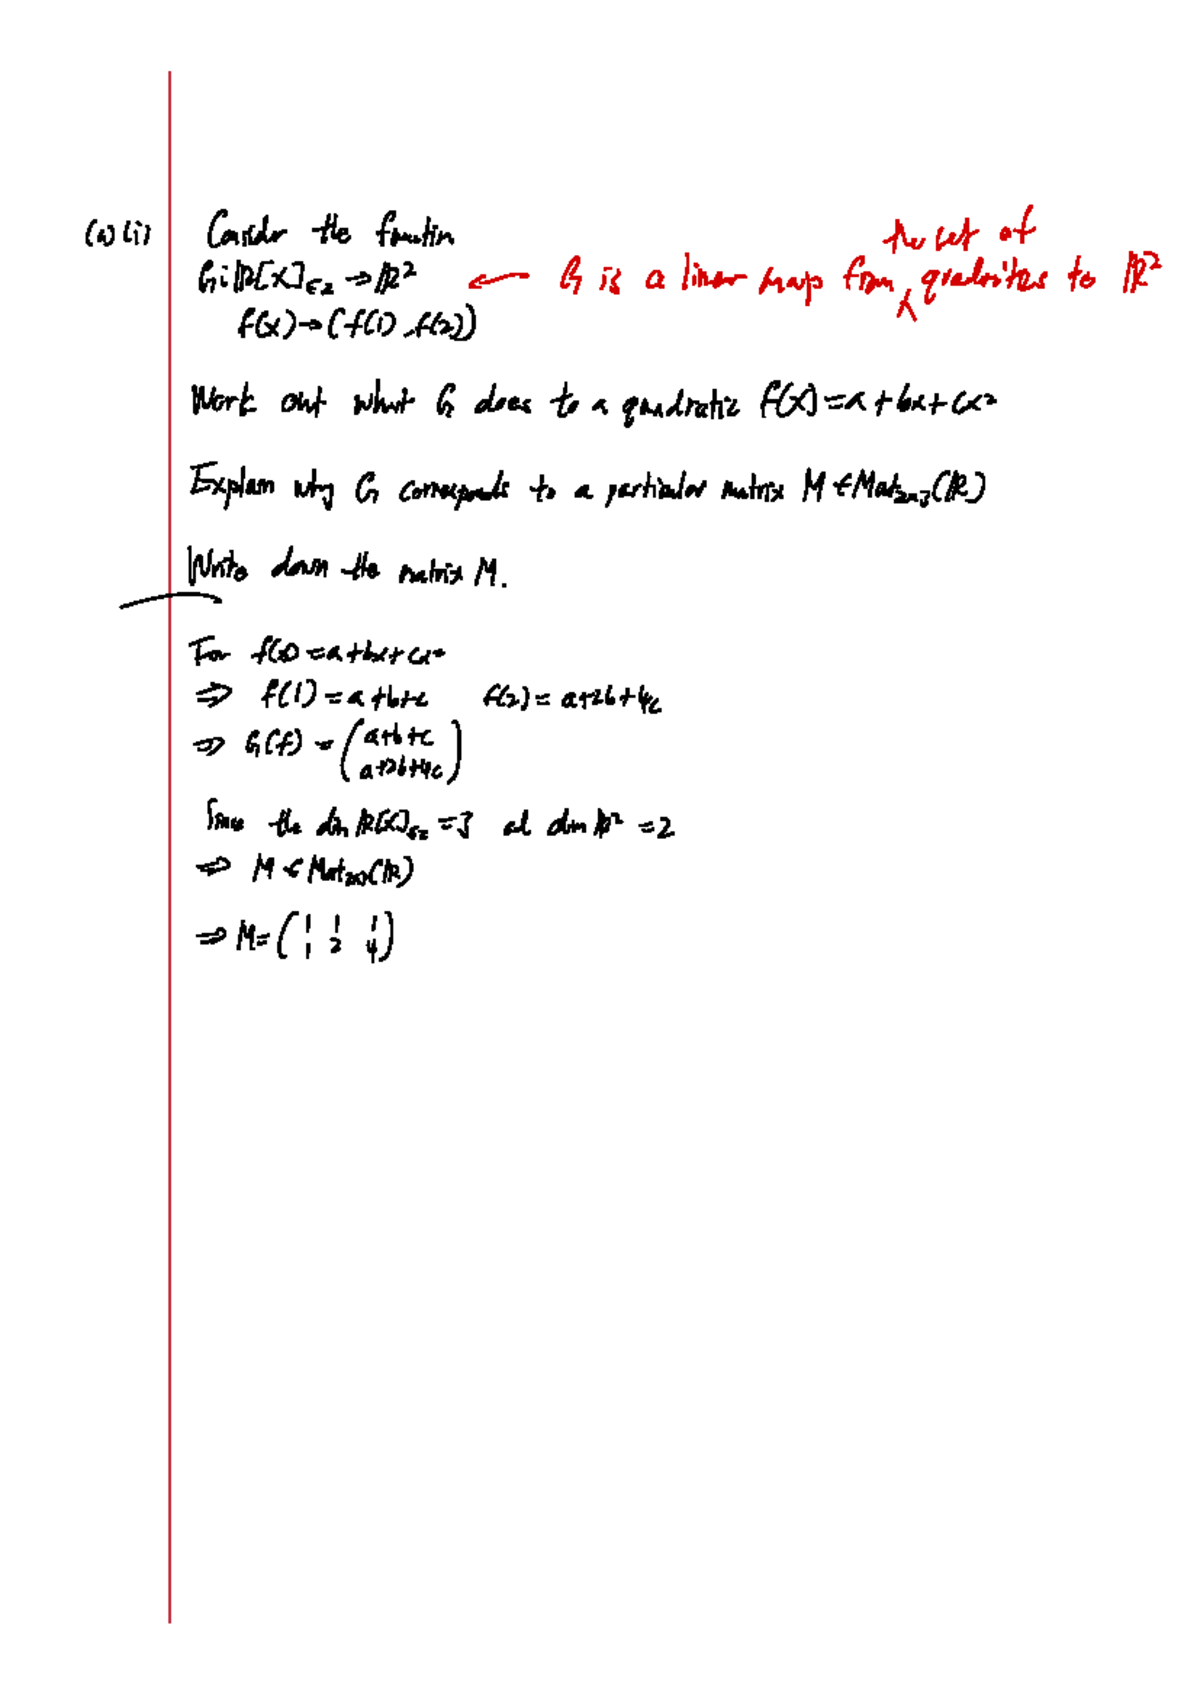 (a)(i) Consider the function
the set of
G: ℝ[x]≤2 → ℝ² ← G is a linear map from ^ quadratics to ℝ²
f(x) → (f(1), f(2))
Work out what G does to a quadratic f(x) = a + bx + cx²
Explain why G corresponds to a particular matrix M ∈ Mat₂ₓ₃(ℝ)
Write down the matrix M.
For f(x) = a + bx + cx²
⇒ f(1) = a + b + c f(2) = a + 2b + 4c
⇒ G(f) = (a+b+c
a+2b+4c)
Since the dim ℝ[x]≤2 = 3 at dim ℝ² = 2
⇒ M ∈ Mat₂ₓ₃(ℝ)
⇒ M = (1 1 1
1 2 4)